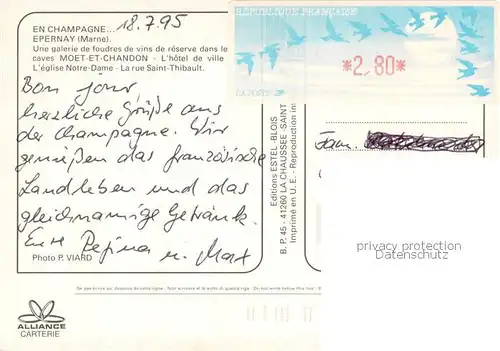 EN CHAMPAGNE... 18.7.95
EPERNAY (Marne).
Une galerie de foudres de vins de réserve dans le
caves MOET-ET-CHANDON - L'hôtel de ville
L'église Notre-Dame - La rue Saint-Thibault.
RÉPUBLIQUE FRANÇAISE
*2,80*
LA POSTE
Bon jour
herzliche Grüße aus
der Champagne. Wir
genießen das französische
Landleben und das
gleichnamige Getränk.
Eure Regina u. Max
Photo P. VIARD
Editions ESTEL-BLOIS
B. P. 45 - 41260 LA CHAUSSEE-SAINT
Imprimé en U. E. - Reproduction in
Fam.
privacy protection
Datenschutz
Ne pas écrire au-dessous de cette ligne - Do not write below
ALLIANCE
CARTERIE